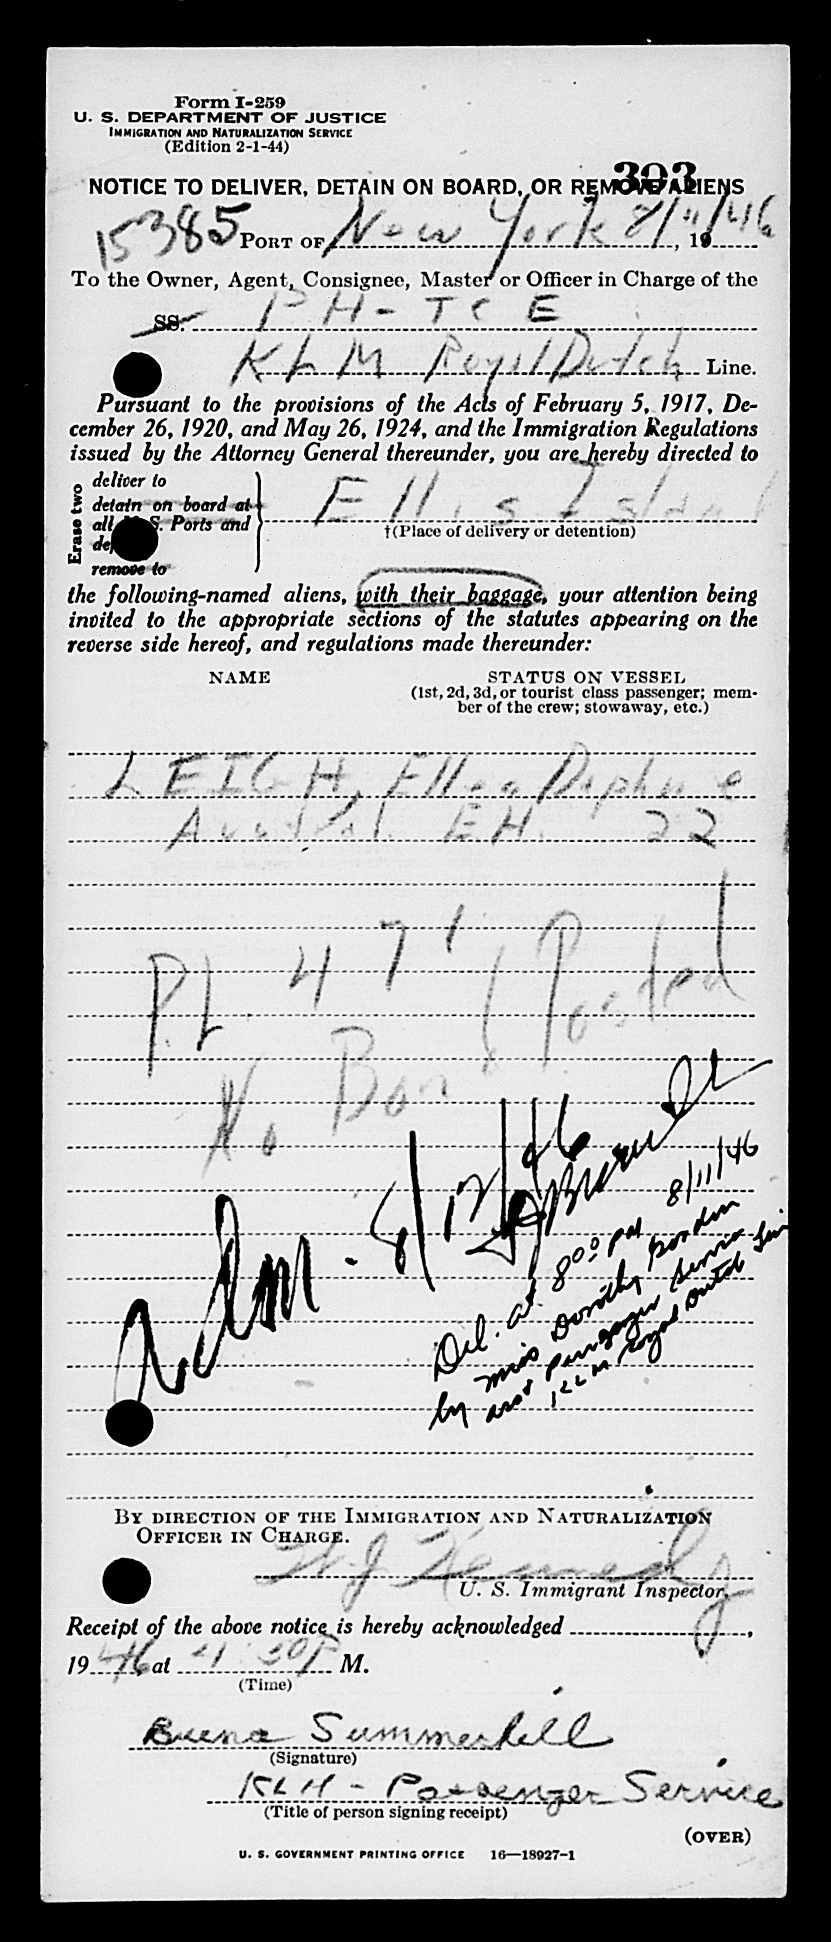 Form I-259
U. S. DEPARTMENT OF JUSTICE
IMMIGRATION AND NATURALIZATION SERVICE
(Edition 2-1-44)
393
NOTICE TO DELIVER, DETAIN ON BOARD, OR REMOVE ALIENS
15385 PORT OF New York 8/11/46, 19
To the Owner, Agent, Consignee, Master or Officer in Charge of the
SS. PH-TCE
KLM Royal Dutch Line.
Pursuant to the provisions of the Acts of February 5, 1917, De-
cember 26, 1920, and May 26, 1924, and the Immigration Regulations
issued by the Attorney General thereunder, you are hereby directed to
Erase two
deliver to
detain on board at
all U. S. Ports and
remove to
Ellis Island
†(Place of delivery or detention)
the following-named aliens, with their baggage, your attention being
invited to the appropriate sections of the statutes appearing on the
reverse side hereof, and regulations made thereunder:
NAME STATUS ON VESSEL
(1st, 2d, 3d, or tourist class passenger; mem-
ber of the crew; stowaway, etc.)
LEIGH, Ellen Daphne
Austral. EH. 22
P.L. 471
No Bond Posted
Adm. 8/12/46
Del. at 8:00 PM 8/11/46
by Miss Dorothy
asst Passenger Service
KLM Royal Dutch Line
BY DIRECTION OF THE IMMIGRATION AND NATURALIZATION
OFFICER IN CHARGE.
W. J. Kennedy
U. S. Immigrant Inspector.
Receipt of the above notice is hereby acknowledged
1946 at 4:30 P M.
(Time)
Buena Summerhill
(Signature)
KLM - Passenger Service
(Title of person signing receipt)
(OVER)
U. S. GOVERNMENT PRINTING OFFICE 16—18927-1